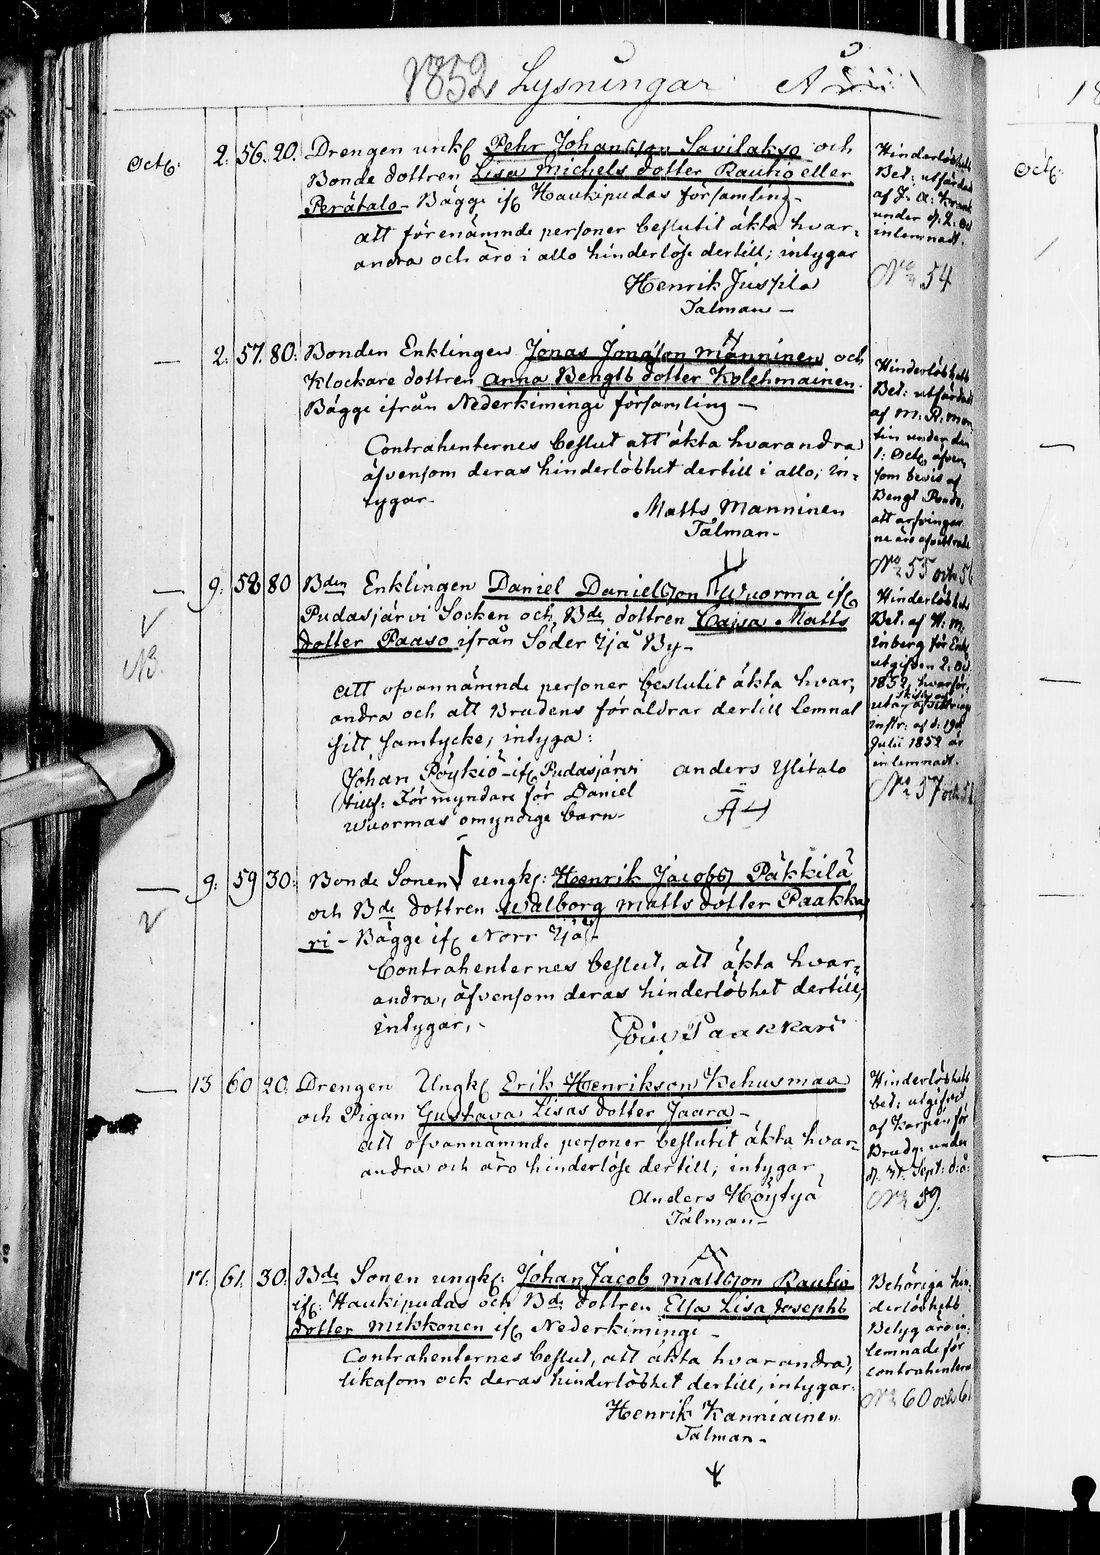 1852 Lysningar A
Octb: 2. 56. 20. Drengen unkl Pehr Johansson Savilakso och
Bonde dottren Lisa Michels dotter Rautio eller
Perätalo - Bägge ifr Haukipudas församling -
att förenämnde personer beslutit äkta hvar-
andra och äro i allo hinderlöse dertill; intygar
Henrik Juspla
Talman -
Hinderlöshets
Bet: utfärdad
af J. A:
under d. 2. Oct
inlemnadt.
No 54
2. 57. 80. Bonden Enklingen Jonas Jonasson Manninen och
Klockare dottren Anna Bengts dotter Kolehmainen.
Bägge ifrån Nederkiminge församling -
Contrahenternes beslut att äkta hvarandra
äfvensom deras hinderlöshet dertill i allo; in-
tygar
Matts Manninen
Talman -
Hinderlöshets
Bet: utfärdad
af M. R. Mon
tin under den
1: Octb. äfven
som bevis af
Bengt
att arfvingar
ne äro afvittrade
No 55 och 56
9. 58 80 Bden Enklingen Daniel Danielsson Wuorma ifr
Pudasjärvi Socken och Bde dottren Cajsa Matts
dotter Paaso ifrån Söder Ijå By -
NB.
att ofvannämnde personer beslutit äkta hvar-
andra och att Brudens föräldrar dertill lemnat
sitt samtycke; intyga:
Johan Pöykiö - ifr Pudasjärvi Anders Ylitalo
tillf: Förmyndare för Daniel
Wuormas omyndige barn -
Hinderlöshets
Bet. af H: M.
Enberg för Enkl
utgifven 2. Oct
1852, hvarför
utan afvittrings
instr: af d. 19de
Julii 1852 är
inlemnadt.
No 57 och 58
9. 59 30. Bonde Sonen ungk: Henrik Jacobs Päkkilä
och Bde dottren Walborg Matts dotter Paakka
ri - Bägge ifr Norr Ijå -
Contrahenternes beslut, att äkta hvar-
andra, äfvensom deras hinderlöshet dertill,
intygar, -
Paakkari
13 60 20. Drengen Ungk Erik Henrikson Kehusmaa
och Pigan Gustava Lisas dotter Jaara -
att ofvannämnde personer beslutit äkta hvar-
andra och äro hinderlöse dertill, intygar,
Anders Höyhtyä
Talman -
Hinderlöshets
bet: utgifvit
af Karpén för
Brudg. under
Sept: d. å.
No 59.
17. 61. 30. Bde Sonen ungk: Johan Jacob Mattsson Rautio
ifr: Haukipudas och Bde dottren Elsa Lisa Josephs
dotter Mikkonen ifr Nederkiminge -
Contrahenternes beslut, att äkta hvarandra,
likasom ock deras hinderlöshet dertill, intygar:
Henrik Kanniainen
Talman -
Behöriga hin-
derlöshets
Betyg äro in-
lemnade för
contrahenterne
No 60 och 61
18
Octb: